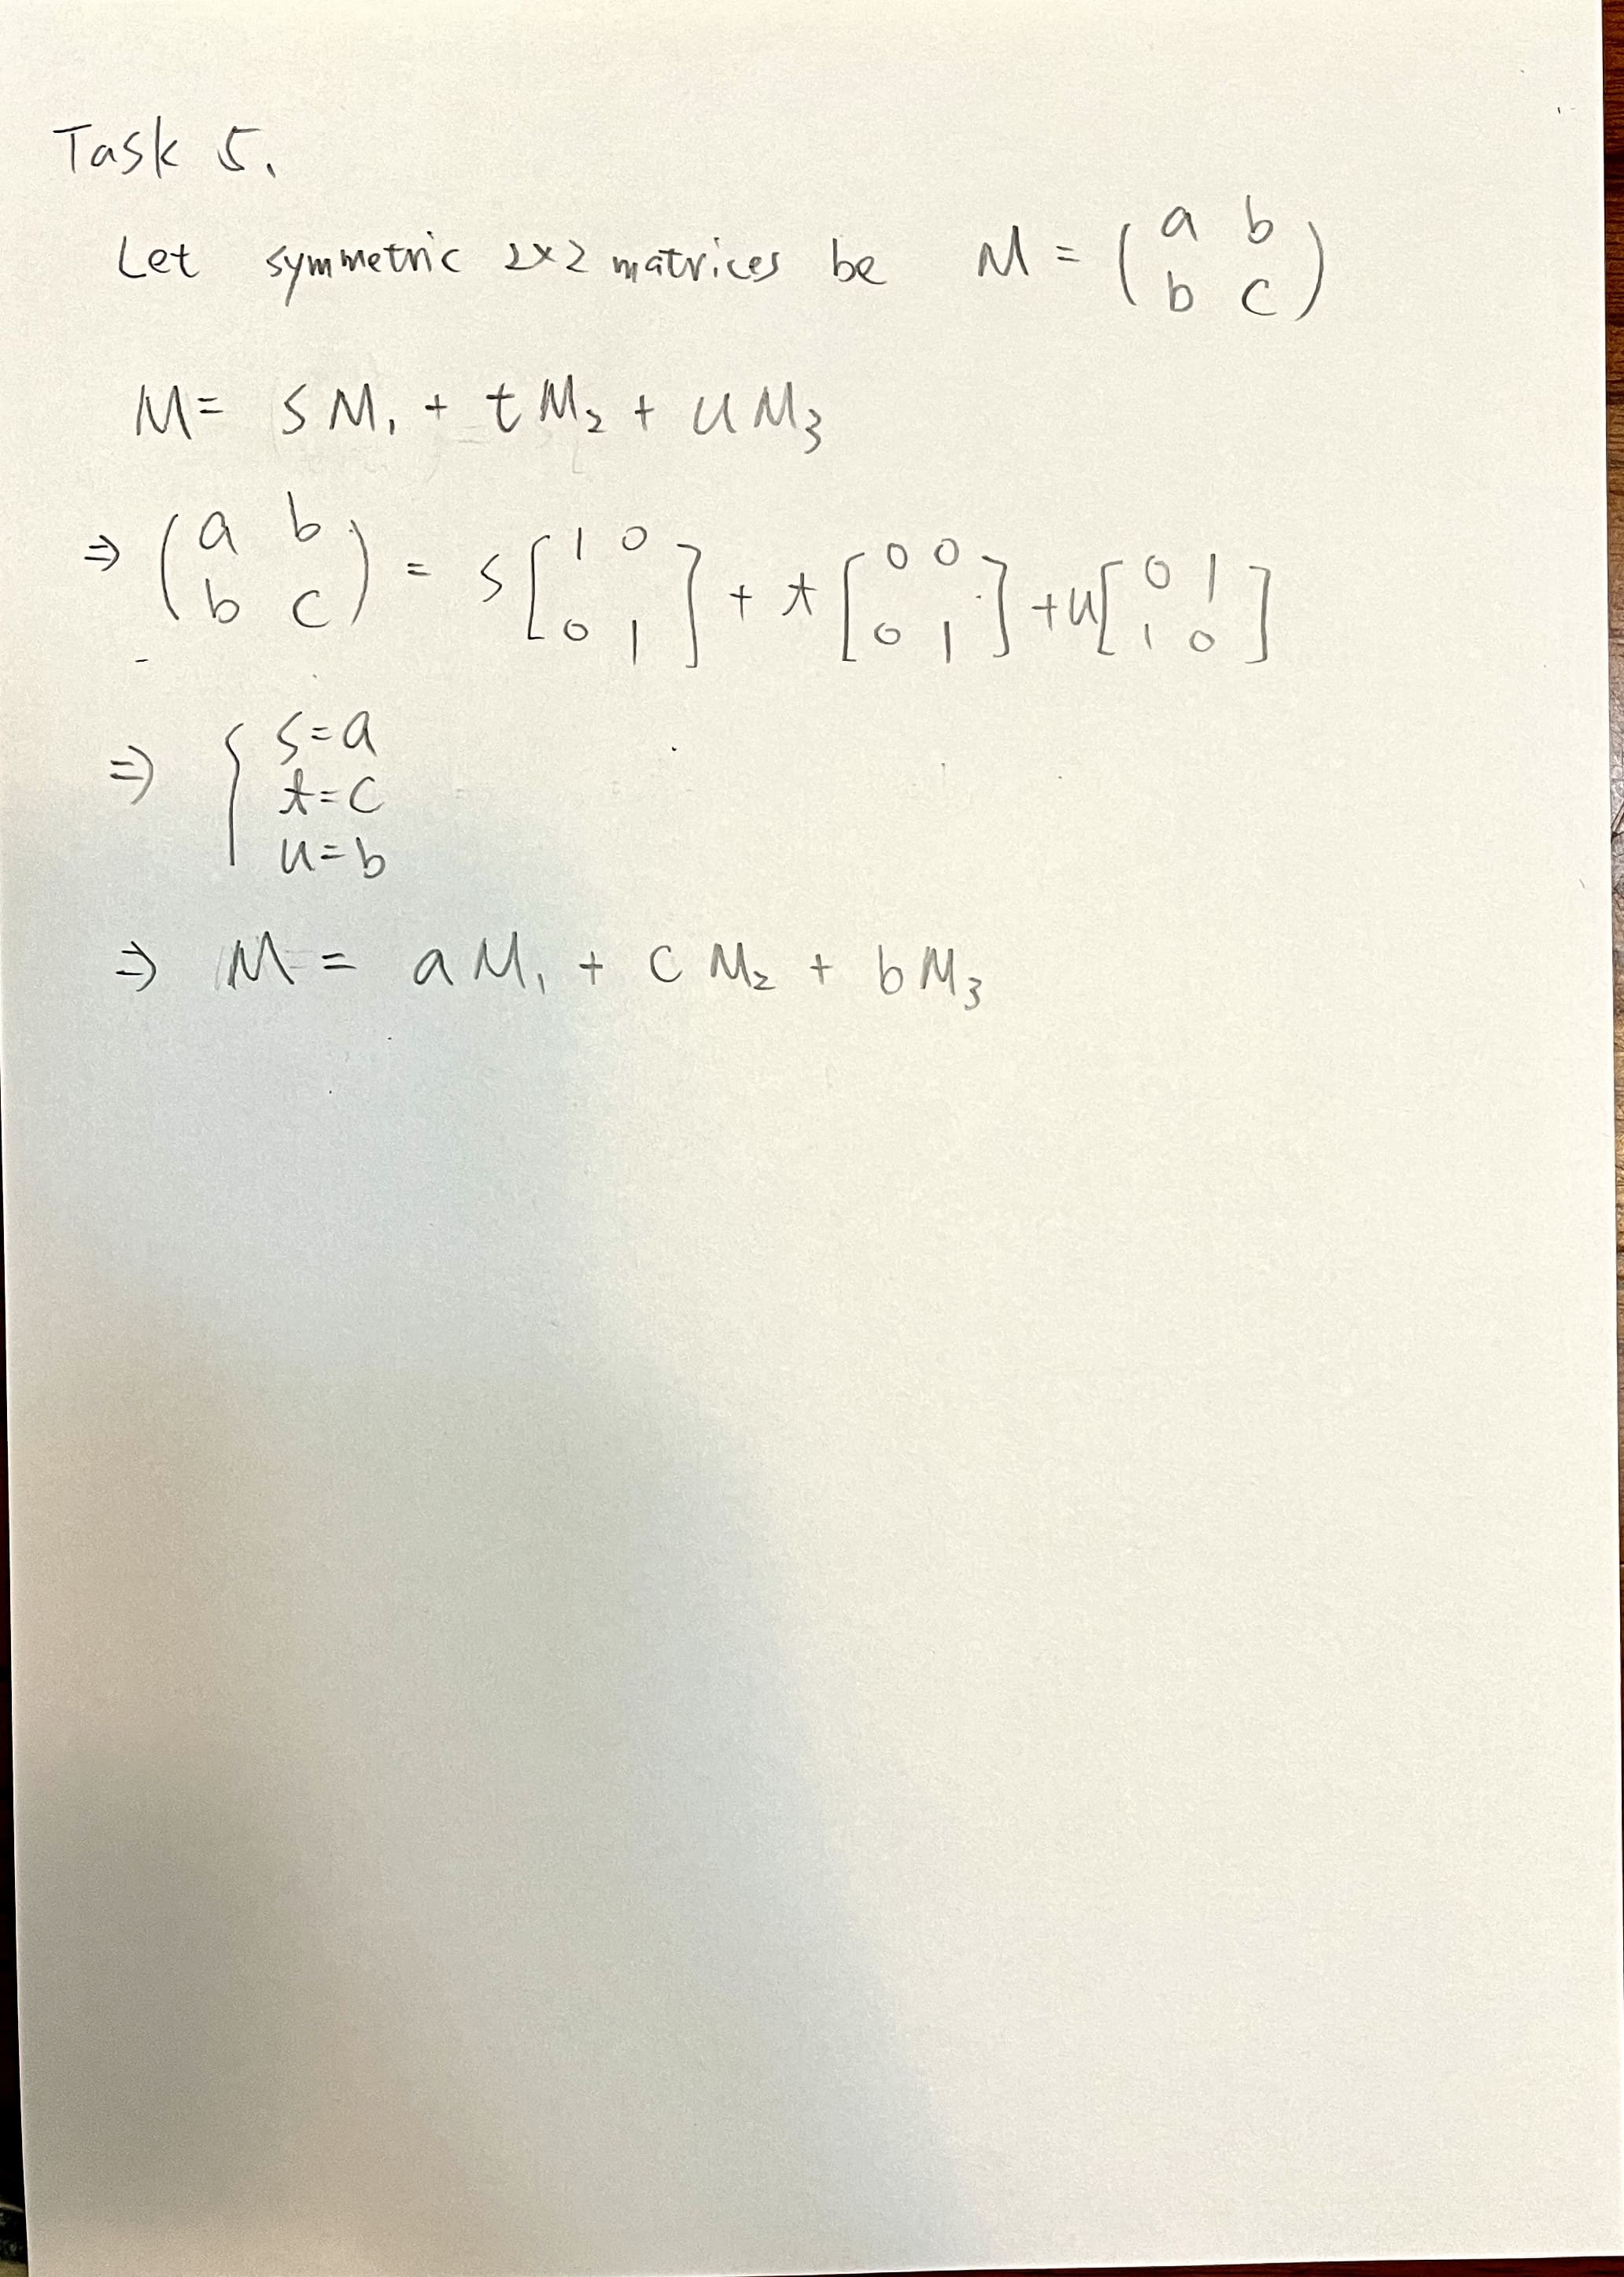 Task 5.
Let symmetric 2×2 matrices be M = (a b
b c)
M = sM₁ + tM₂ + uM₃
⇒ (a b
b c) = s[1 0
0 1] + t[0 0
0 1] + u[0 1
1 0]
⇒ { s=a
t=c
u=b
⇒ M = aM₁ + cM₂ + bM₃